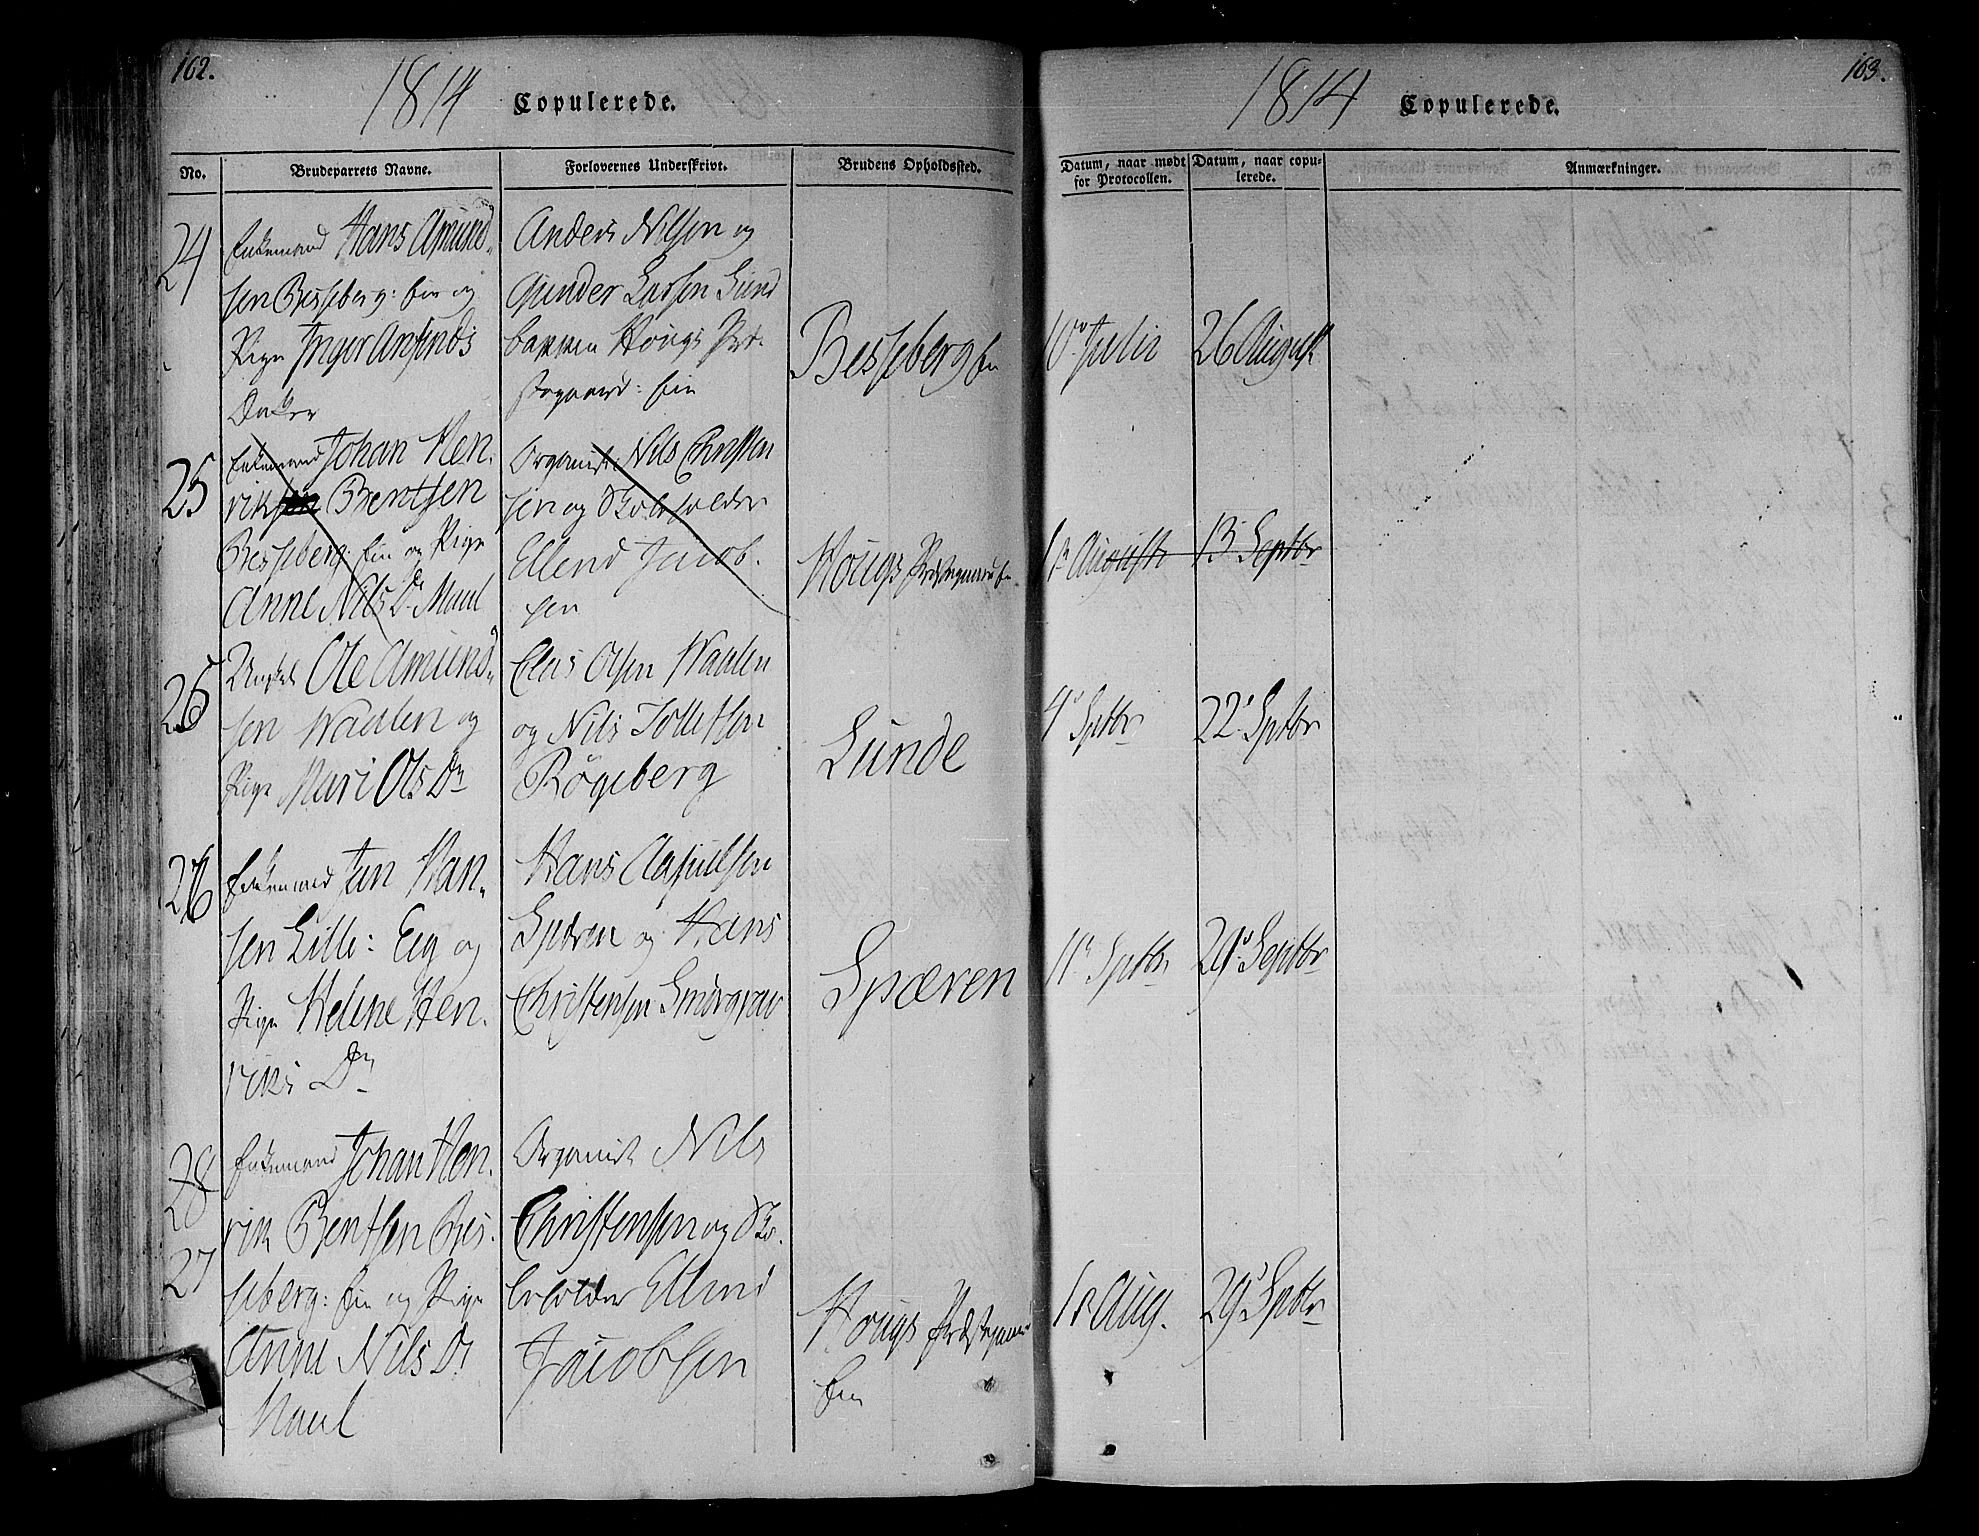 162.
1814 Copulerede.
No. Brudeparrets Navne. Forlovernes Underskrivt. Brudens Opholdssted.
24
Enkemand Hans Amund-
sen Besseberg: Eie og
Pige Inger Amunds
Datter
Anders Nilsen og
Gunder Larsen Lund
bakken Hougs Præ-
stegaard: Eie
Besseberg Eie
25
Enkemand Johan Hen-
rik Bentsen
Besseberg: Eie og Pige
Anne Nils Dr. Muul
Organist Nils Christen
sen og Skoleholder
Ellend Jacob-
sen
Hougs Præstegaard Eie
26
Unkel Ole Amund-
sen Waalen og
Pige Mari Ols Dr
Elias Olsen Waalen
og Nils Tollefsen
Røgeberg
Lunde
26
Enkemand Jan Han-
sen Lille: Eeg og
Pige Helene Hen-
riks Dr
Hans Aslpulsen
Spæren og Hans
Christensen Smørgrav
Spæren
28
27
Enkemand Johan Hen-
rik Bentsen Bes-
seberg: Eie og Pige
Anne Nils Dr
Muul
Organist Nils
Christensen og Sko-
leholder Ellend
Jacobsen
Hougs Præstegaard
Eie
163.
1814 Copulerede.
Datum, naar mødt for Protocollen. Datum, naar copulerede. Anmærkninger.
10 Julii 26 August
13 Septbr
4 Septbr 22 Septbr
11 Septbr 29 Septbr
Aug. 29 Septbr